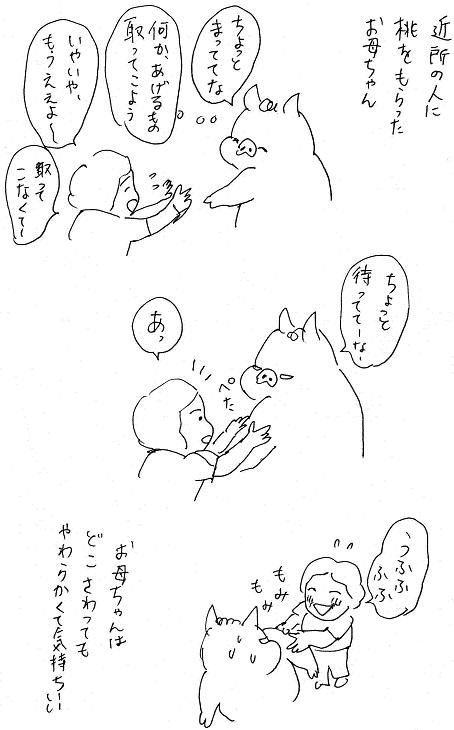 近所の人に
桃をもらった
お母ちゃん
ちょっと
まっててな
何か、あげるもの
取ってこよう
いやいや、
もうええよ〜
取って
こなくて〜
ちょっと
待っててーな
あっ
ぺた
うふふ
ふふ
もみ
もみ
お母ちゃんは
どこさわっても
やわらかくて気持ちいい